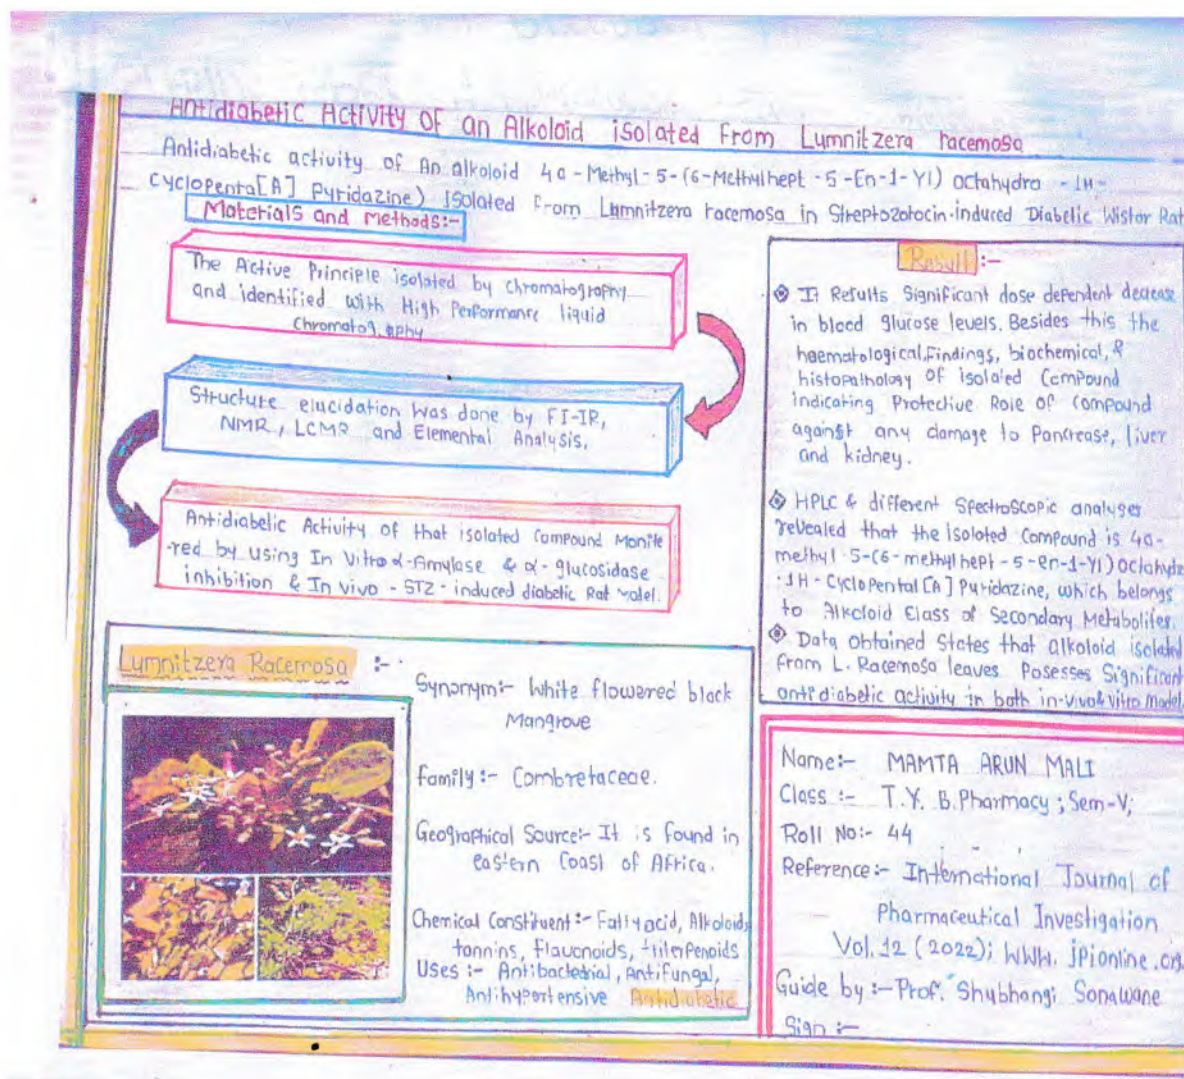 Antidiabetic Activity OF an Alkoloid isolated From Lumnitzera racemosa
Antidiabetic activity of An alkoloid 4a-Methyl-5-(6-Methylhept-5-En-1-Yl) octahydro -1H-
cyclopenta[A] Pyridazine) Isolated From Lumnitzera racemosa in Streptozotocin-induced Diabetic Wistar Rat
Materials and methods:-
The Active Principle isolated by chromatography
and identified with High Performance liquid
Chromatog.aphy
Structure elucidation was done by FI-IR,
NMR, LCMR and Elemental Analysis.
Antidiabetic Activity of that isolated Compound Monito
-red by using In Vitro α-Amylase & α-glucosidase
inhibition & In vivo - STZ - induced diabetic Rat Model.
Result :-
It Results Significant dose dependent decrease
in blood glucose levels. Besides this the
haematological, Findings, biochemical, &
histopathology of isolated Compound
indicating Protective Role of Compound
against any damage to Pancrease, liver
and kidney.
HPLC & different Spectroscopic analyses
revealed that the isolated Compound is 4a-
methyl-5-(6-methylhept-5-en-1-Yl) octahydro
-1H-Cyclopental [A] Pyridazine, which belongs
to Alkaloid Class of Secondary Metabolites.
Data obtained States that alkaloid isolated
From L. Racemosa leaves Posesses Significant
antidiabetic activity in both in-vivo & vitro Model.
Lumnitzera Racemosa :-
Synonym:- White flowered black
Mangrove
Family:- Combretaceae.
Geographical Source:- It is found in
eastern Coast of Africa.
Chemical Constituent:- Fatty acid, Alkaloids
tannins, flavonoids, triterpenoids
Uses :- Antibacterial, Antifungal,
Antihypertensive Antidiabetic
Name:- MAMTA ARUN MALI
Class :- T.Y. B.Pharmacy ; Sem-V;
Roll No:- 44
Reference:- International Journal of
Pharmaceutical Investigation
Vol.12 (2022); WWW. jpionline.org.
Guide by :- Prof. Shubhangi Sonawane
Sign :-